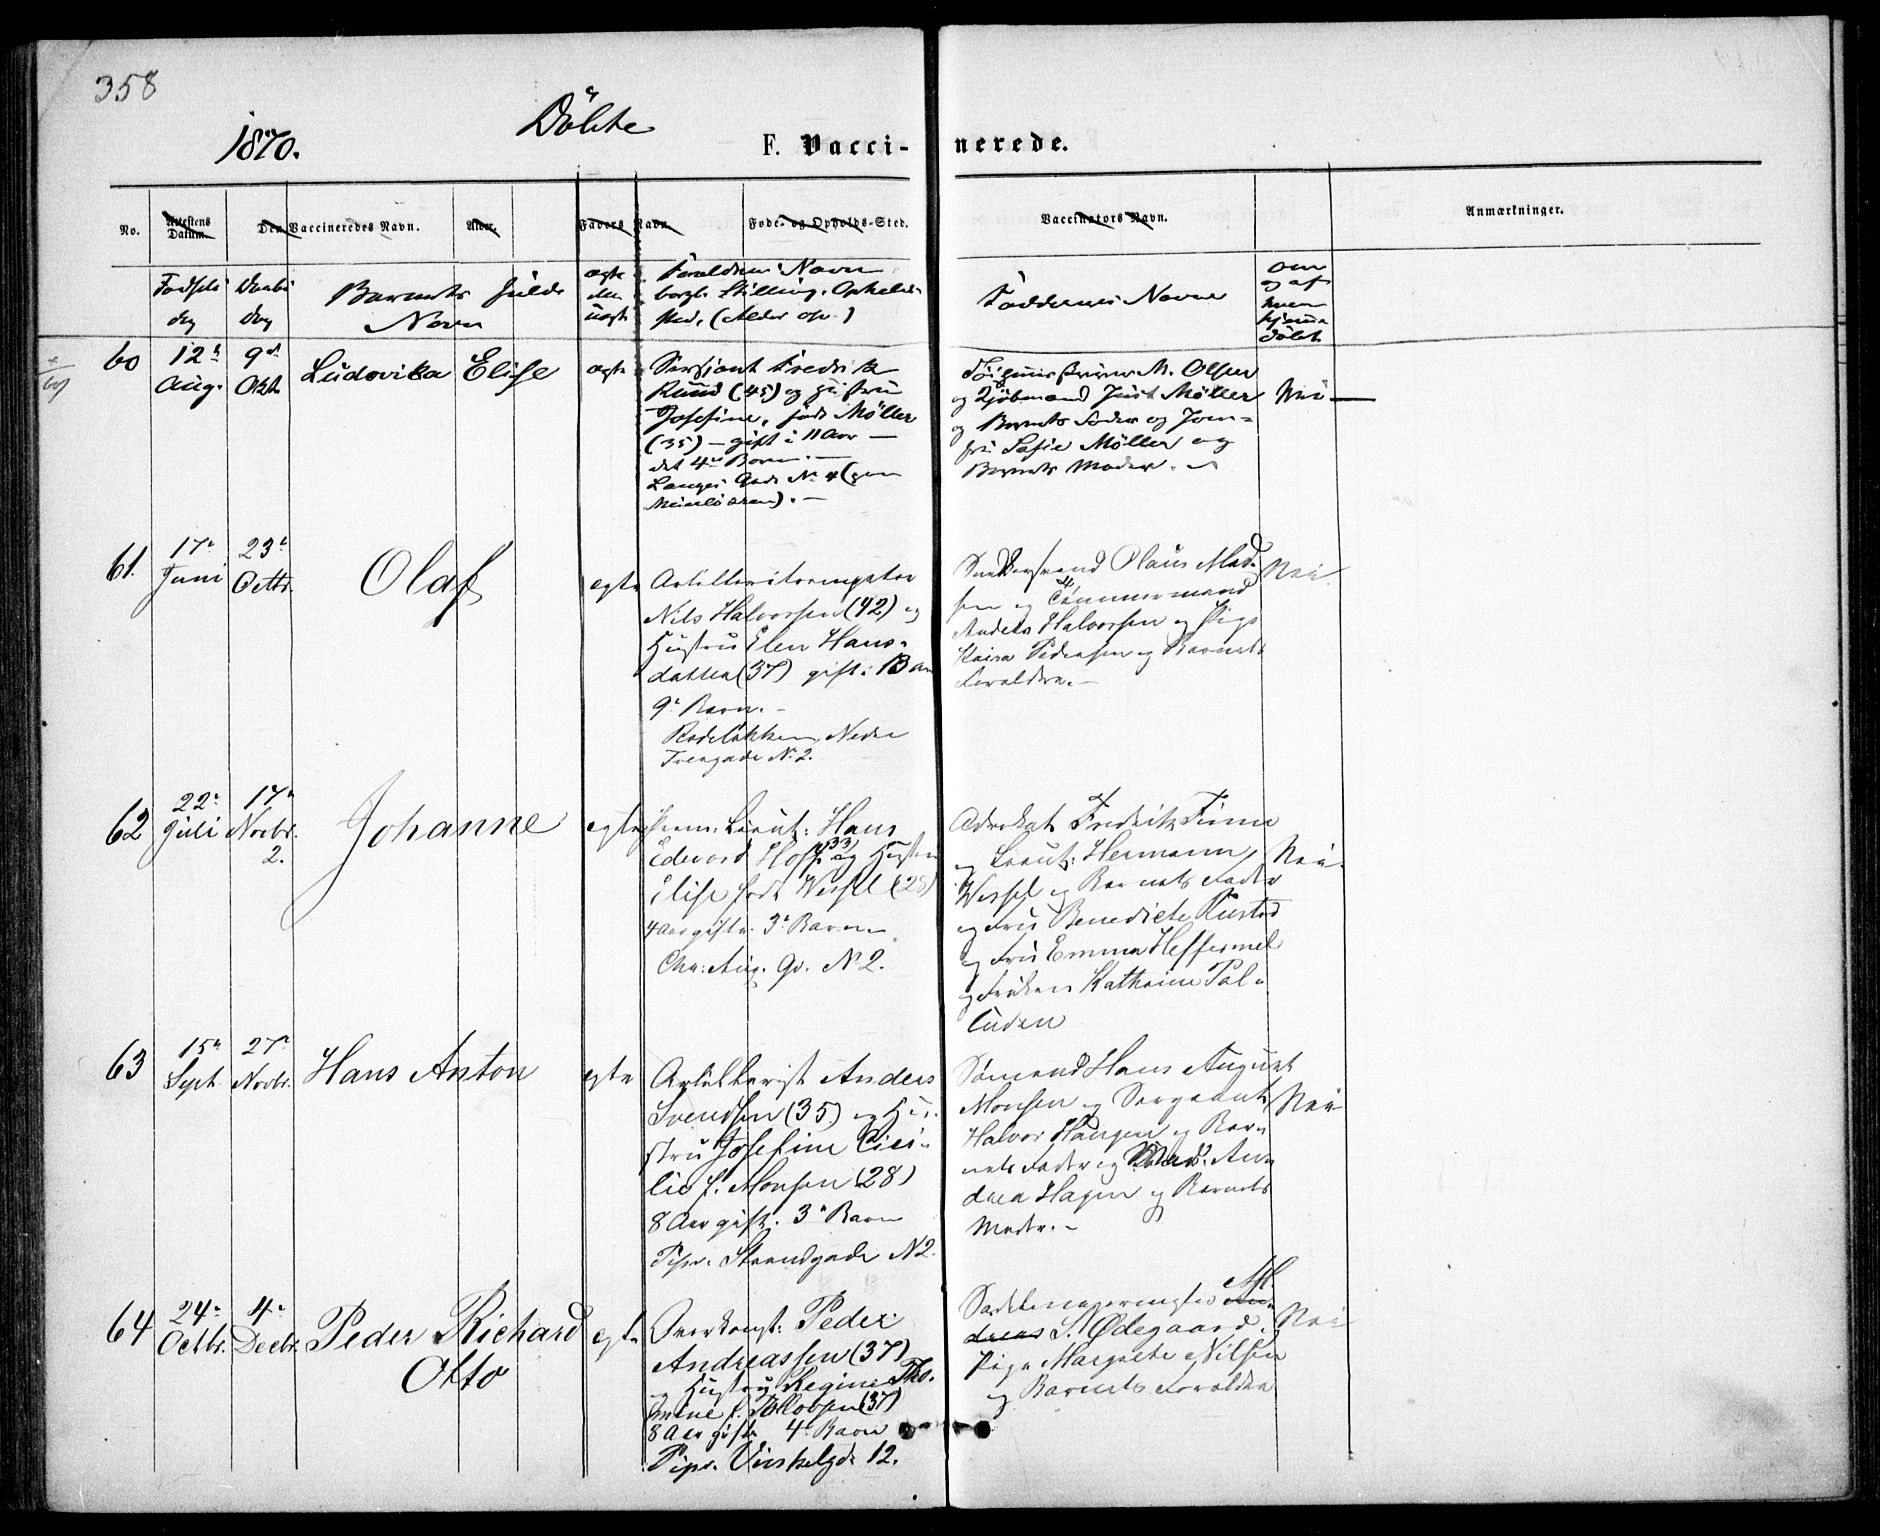 358
1870.
Döbte
F. Vaccinerede.
No.
Attestens Datum.
Den Vaccineredes Navn.
Alder.
Faders Navn
Føde- og Opholds-Sted.
Vaccinators Navn.
Anmærkninger.
Fødsels dag
Daabs dag
Barnets fulde Navn
ægte
uægte
Forældrenes Navn
Stilling, Opholds-
sted, (Alder osv.)
Faddernes Navne
om og af hvem hjemmedøbt
60
12te Aug.
9de Okt.
Ludovika Elise
ægte
Sersjant Fredrik
Ruud (45) og Hustru
Josefine, født Møller
(35) – gift i 11 Aar –
det 4de Barn. –
Langes Gade No 4
M. Olsen
og Kjøbmand Just Møller
og Barnets Fader og Jom-
fru Sofie Møller og
Barnets Moder.
Nei –
61.
17de Juni
23de Octbr.
Olaf
ægte
Nils Halvorsen (42) og
Hustru Elen Hans-
datter (37) gift i 13 Aar
9de Barn. –
Rodeløkken, Nedre
No 2.
Olaus Mad-
sen og Tømmermand
Anders Halvorsen og Pige
Pedersen og Barnets
Forældre. –
Nei
62
22de Juli
17de Novbr.
2.
Johanne
ægte
Prem. Lieut: Hans
Edevard Hoff (33) og Hustru
Elise født Wessel (28)
4 Aar gifte. 3de Barn
Chr: Aug. Gd. No 2.
Advokat Fredrik Finne
og Lieut: Hermann
Wessel og Barnets Fader
og Fru Benedicte
og Fru Emma Heffermel
og Frøken Kathrine Pal-
luden
Nei.
63
15de Sept.
27de Novbr.
Hans Anton
ægte
Artillerist Anders
Svendsen (35) og Hu-
stru Josefine Ceci-
lie f. Monsen (28)
8 Aar gift. 3de Barn
Piper. Strandgade No 2.
Sømand Hans August
Monsen og Sergeant
Halvor Haugen og Bar-
nets Fader og Mad. An-
drea Hagen og Barnets
Moder. –
Nei
64
24de Octbr.
4de Decbr.
Peder Richard
Otto
ægte
Overkonst: Peder
Andreassen (37)
og Hustru Regine Tho-
mine f. Jacobsen (37)
8 Aar gifte 4de Barn
Piper. Vinkelgd. 12.
Sadelmagermester An-
dreas S. Ødegaard.
Pige Margrete Nilsen
og Barnets Forældre
Nei